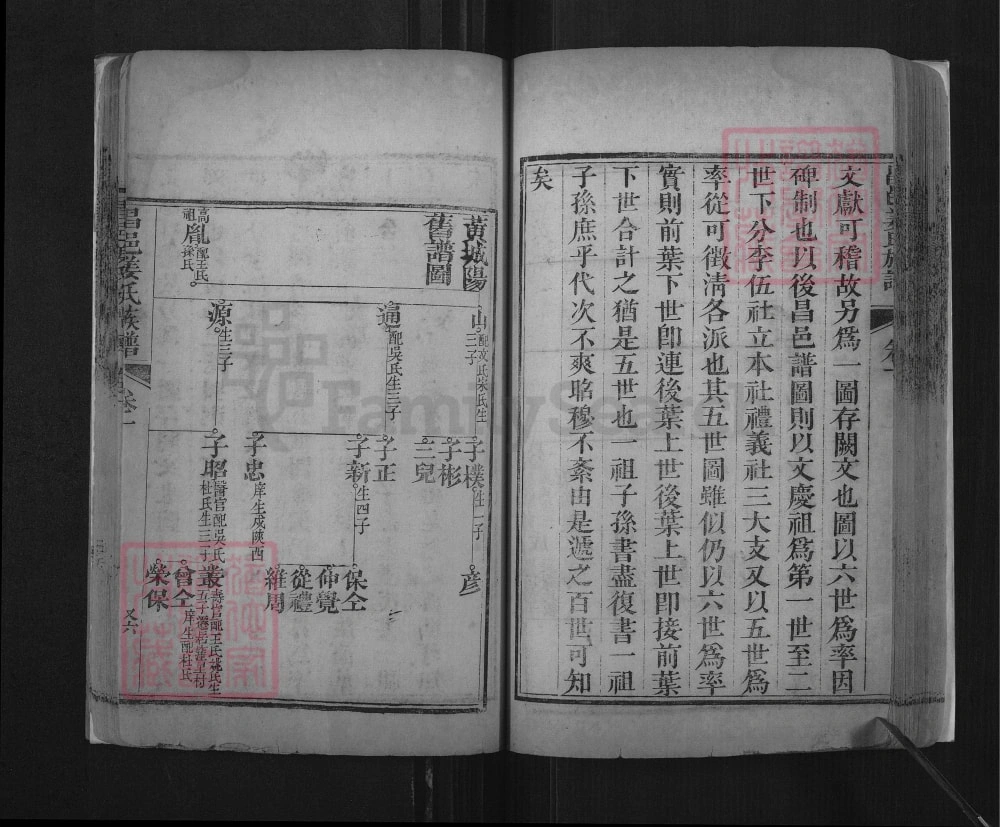 文獻可稽故另爲一圖存闕文也圖以六世爲率因
碑制也以後昌邑譜圖則以文慶祖爲第一世至二
世下分李伍社立本社禮義社三大支又以五世爲
率從可徵淸各派也其五世圖雖似仍以六世爲率
實則前葉下世卽連後葉上世後葉上世卽接前葉
下世合計之猶是五世也一祖子孫書盡復書一祖
子孫庶乎代次不爽昭穆不紊由是遞之百世可知
矣
黃城陽
舊譜圖
高祖胤配王氏孫氏
山配文氏宋氏生三子
通配吳氏生三子
源生三子
子樸生一子
子彬
三兒
子正
子新生四子
子忠庠生戍陝西
子昭醫官配吳氏杜氏生三子
彥
保仝
仲覺
從禮
維周
叢壽官配王氏姚氏生五子
會仝庠生配杜氏
榮保
又六
昌邑 氏族譜 卷一
FamilySearch